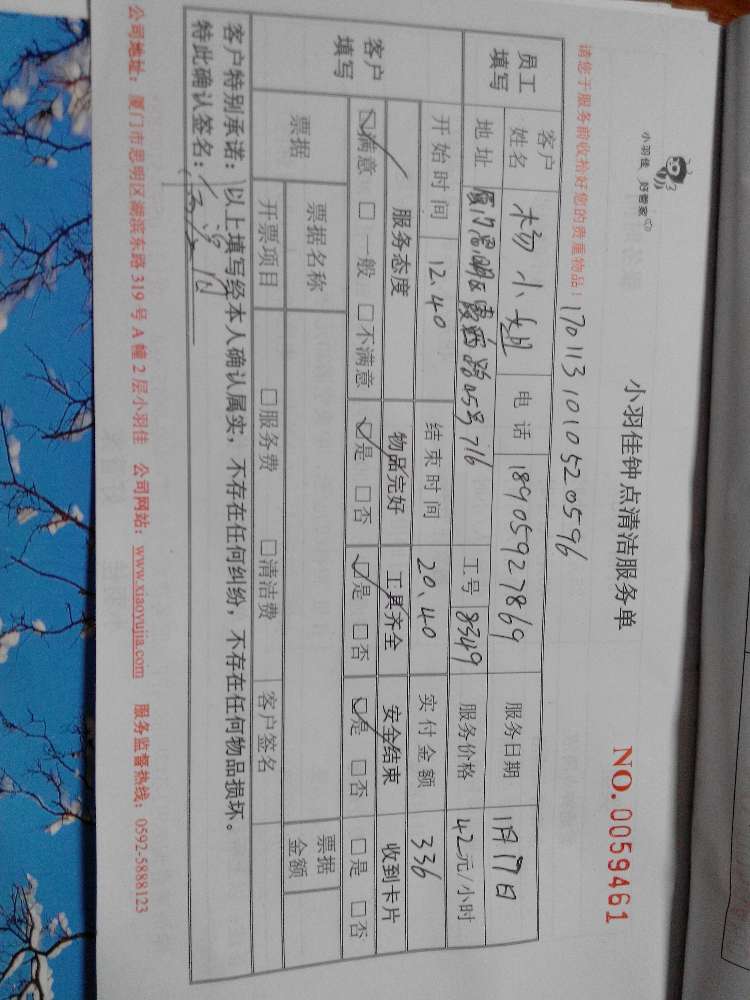 小羽佳 好管家
小羽佳钟点清洁服务单
NO. 0059461
请您于服务前收拾好您的贵重物品！
1701131010520596
员工填写
客户姓名 杨小姐 电话 18905927869 服务日期 1月17日
地址 厦门思明区霞西路05号716 工号 8349 服务价格 42元/小时
开始时间 12.40 结束时间 20.40 实付金额 336
客户填写
服务态度 物品完好 工具齐全 安全结束 收到卡片
☑满意 □一般 □不满意 ☑是 □否 ☑是 □否 ☑是 □否 □是 □否
票据 票据名称 票据金额
开票项目 □服务费 □清洁费 客户签名
客户特别承诺：以上填写经本人确认属实，不存在任何纠纷，不存在任何物品损坏。
特此确认签名：
公司地址：厦门市思明区湖滨东路319号A幢2层小羽佳 公司网站：www.xiaoyujia.com 服务监督热线：0592-5888123